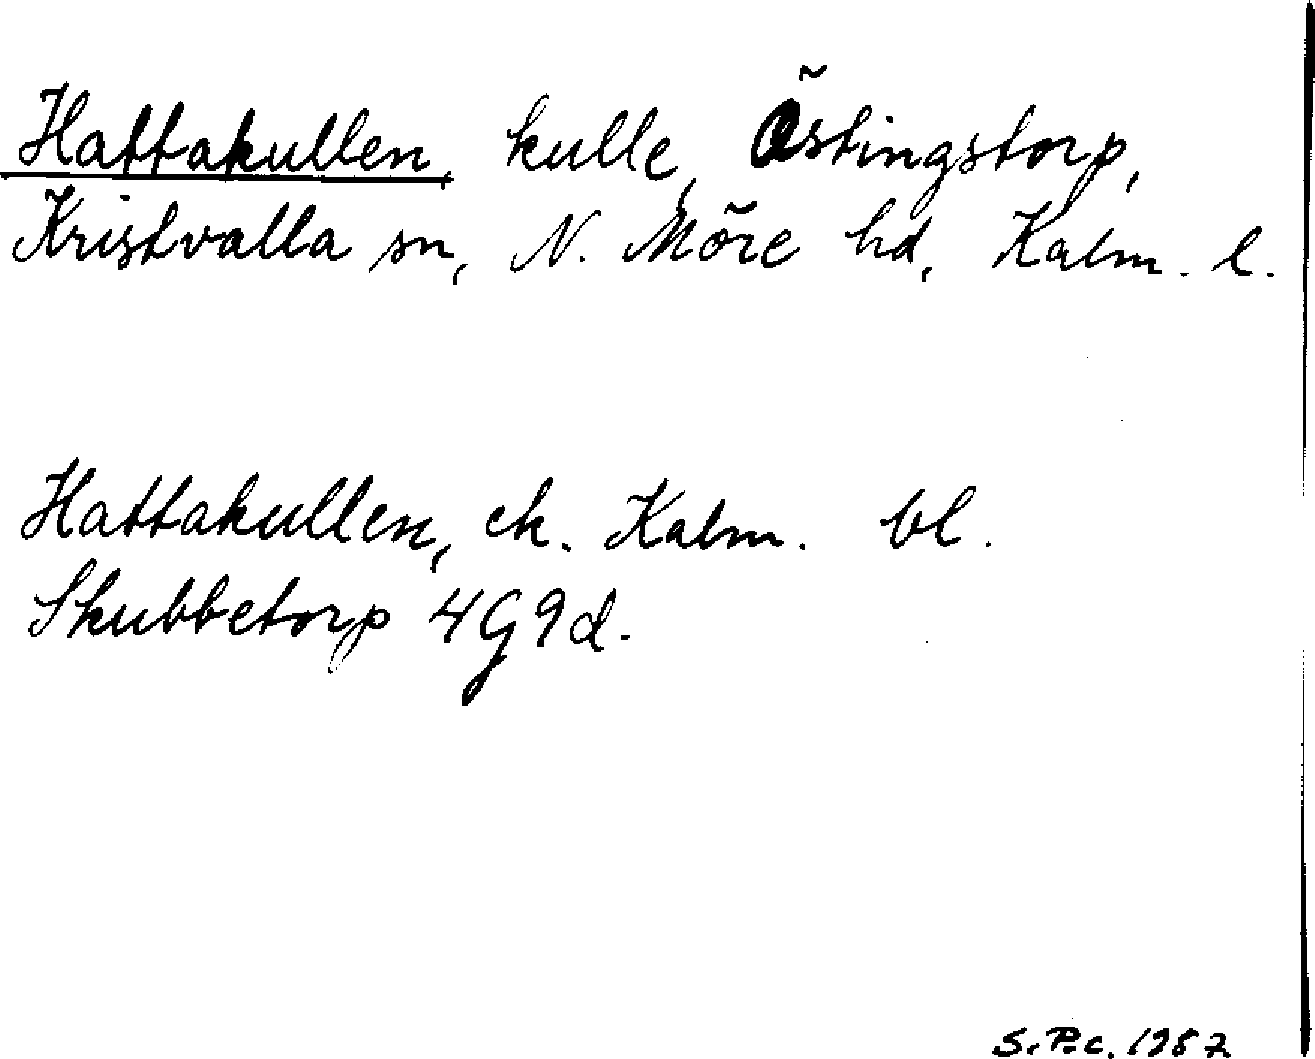 Hattakullen, kulle, Östingstorp,
Kristvalla sn, N. Möre hd, Kalm. l.
Hattakullen, ek. Kalm. bl.
Skubbetorp 4G9d.
S.P.c. 1957